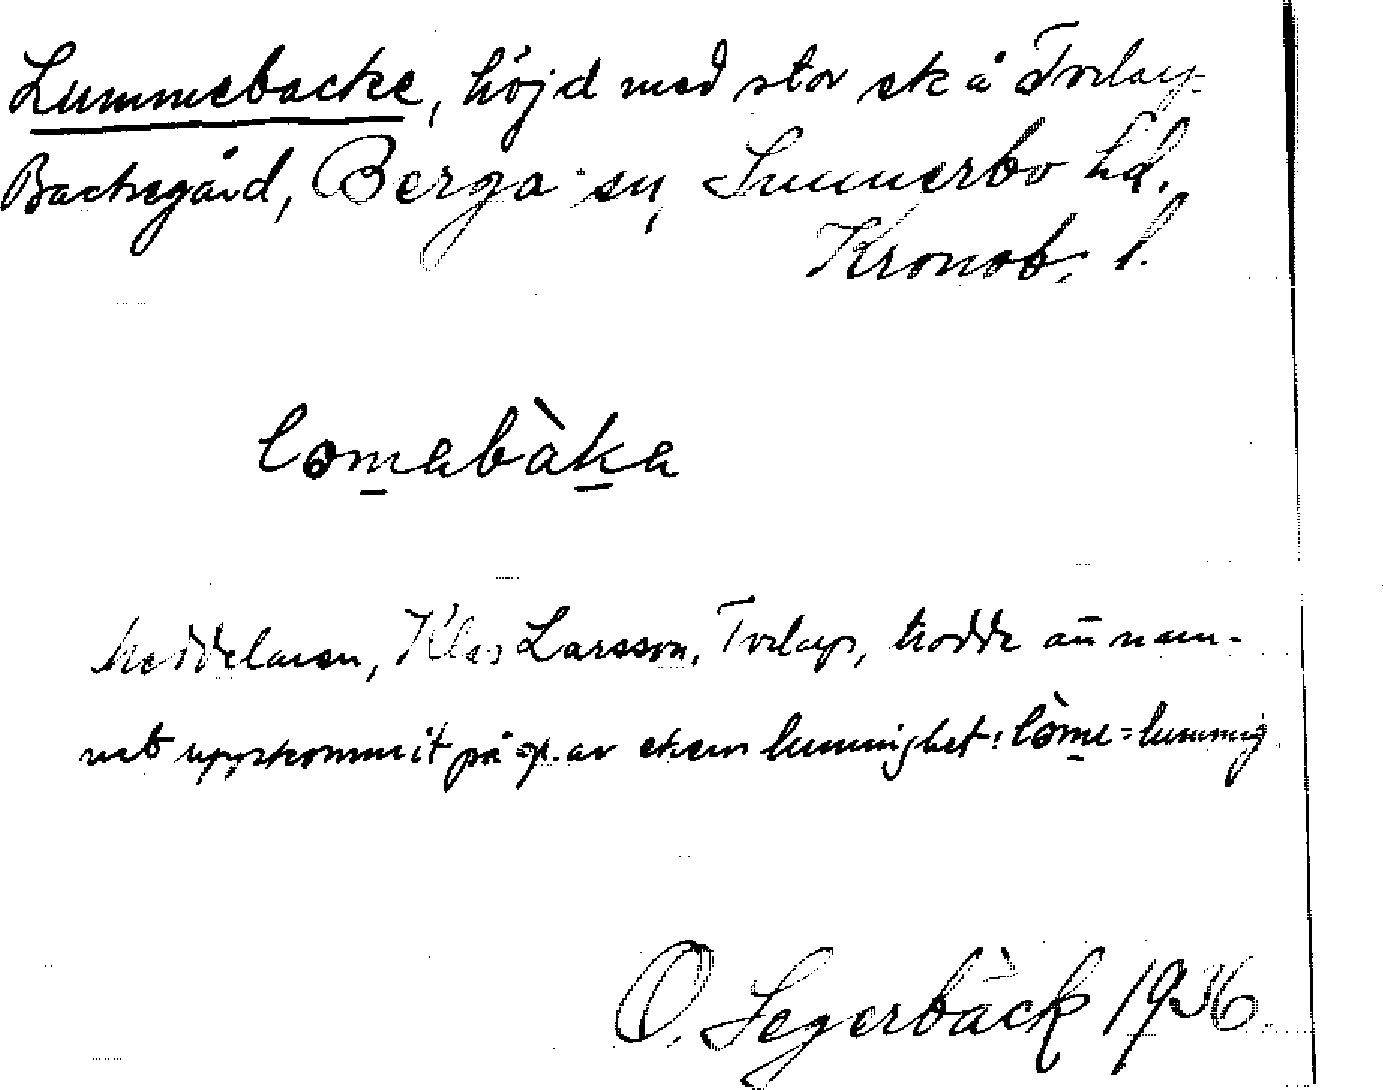 Lummebacke, höjd med stor ek å Torlarp-
Backegård, Berga sn, Sunnerbo hd.
Kronob. l.
lomabàka
Meddelaren, Klas Larsson, Torlarp, trodde att nam-
net uppkommit på gr. av ekens lummighet: lòme = lummig
O. Segerbäck 1936.